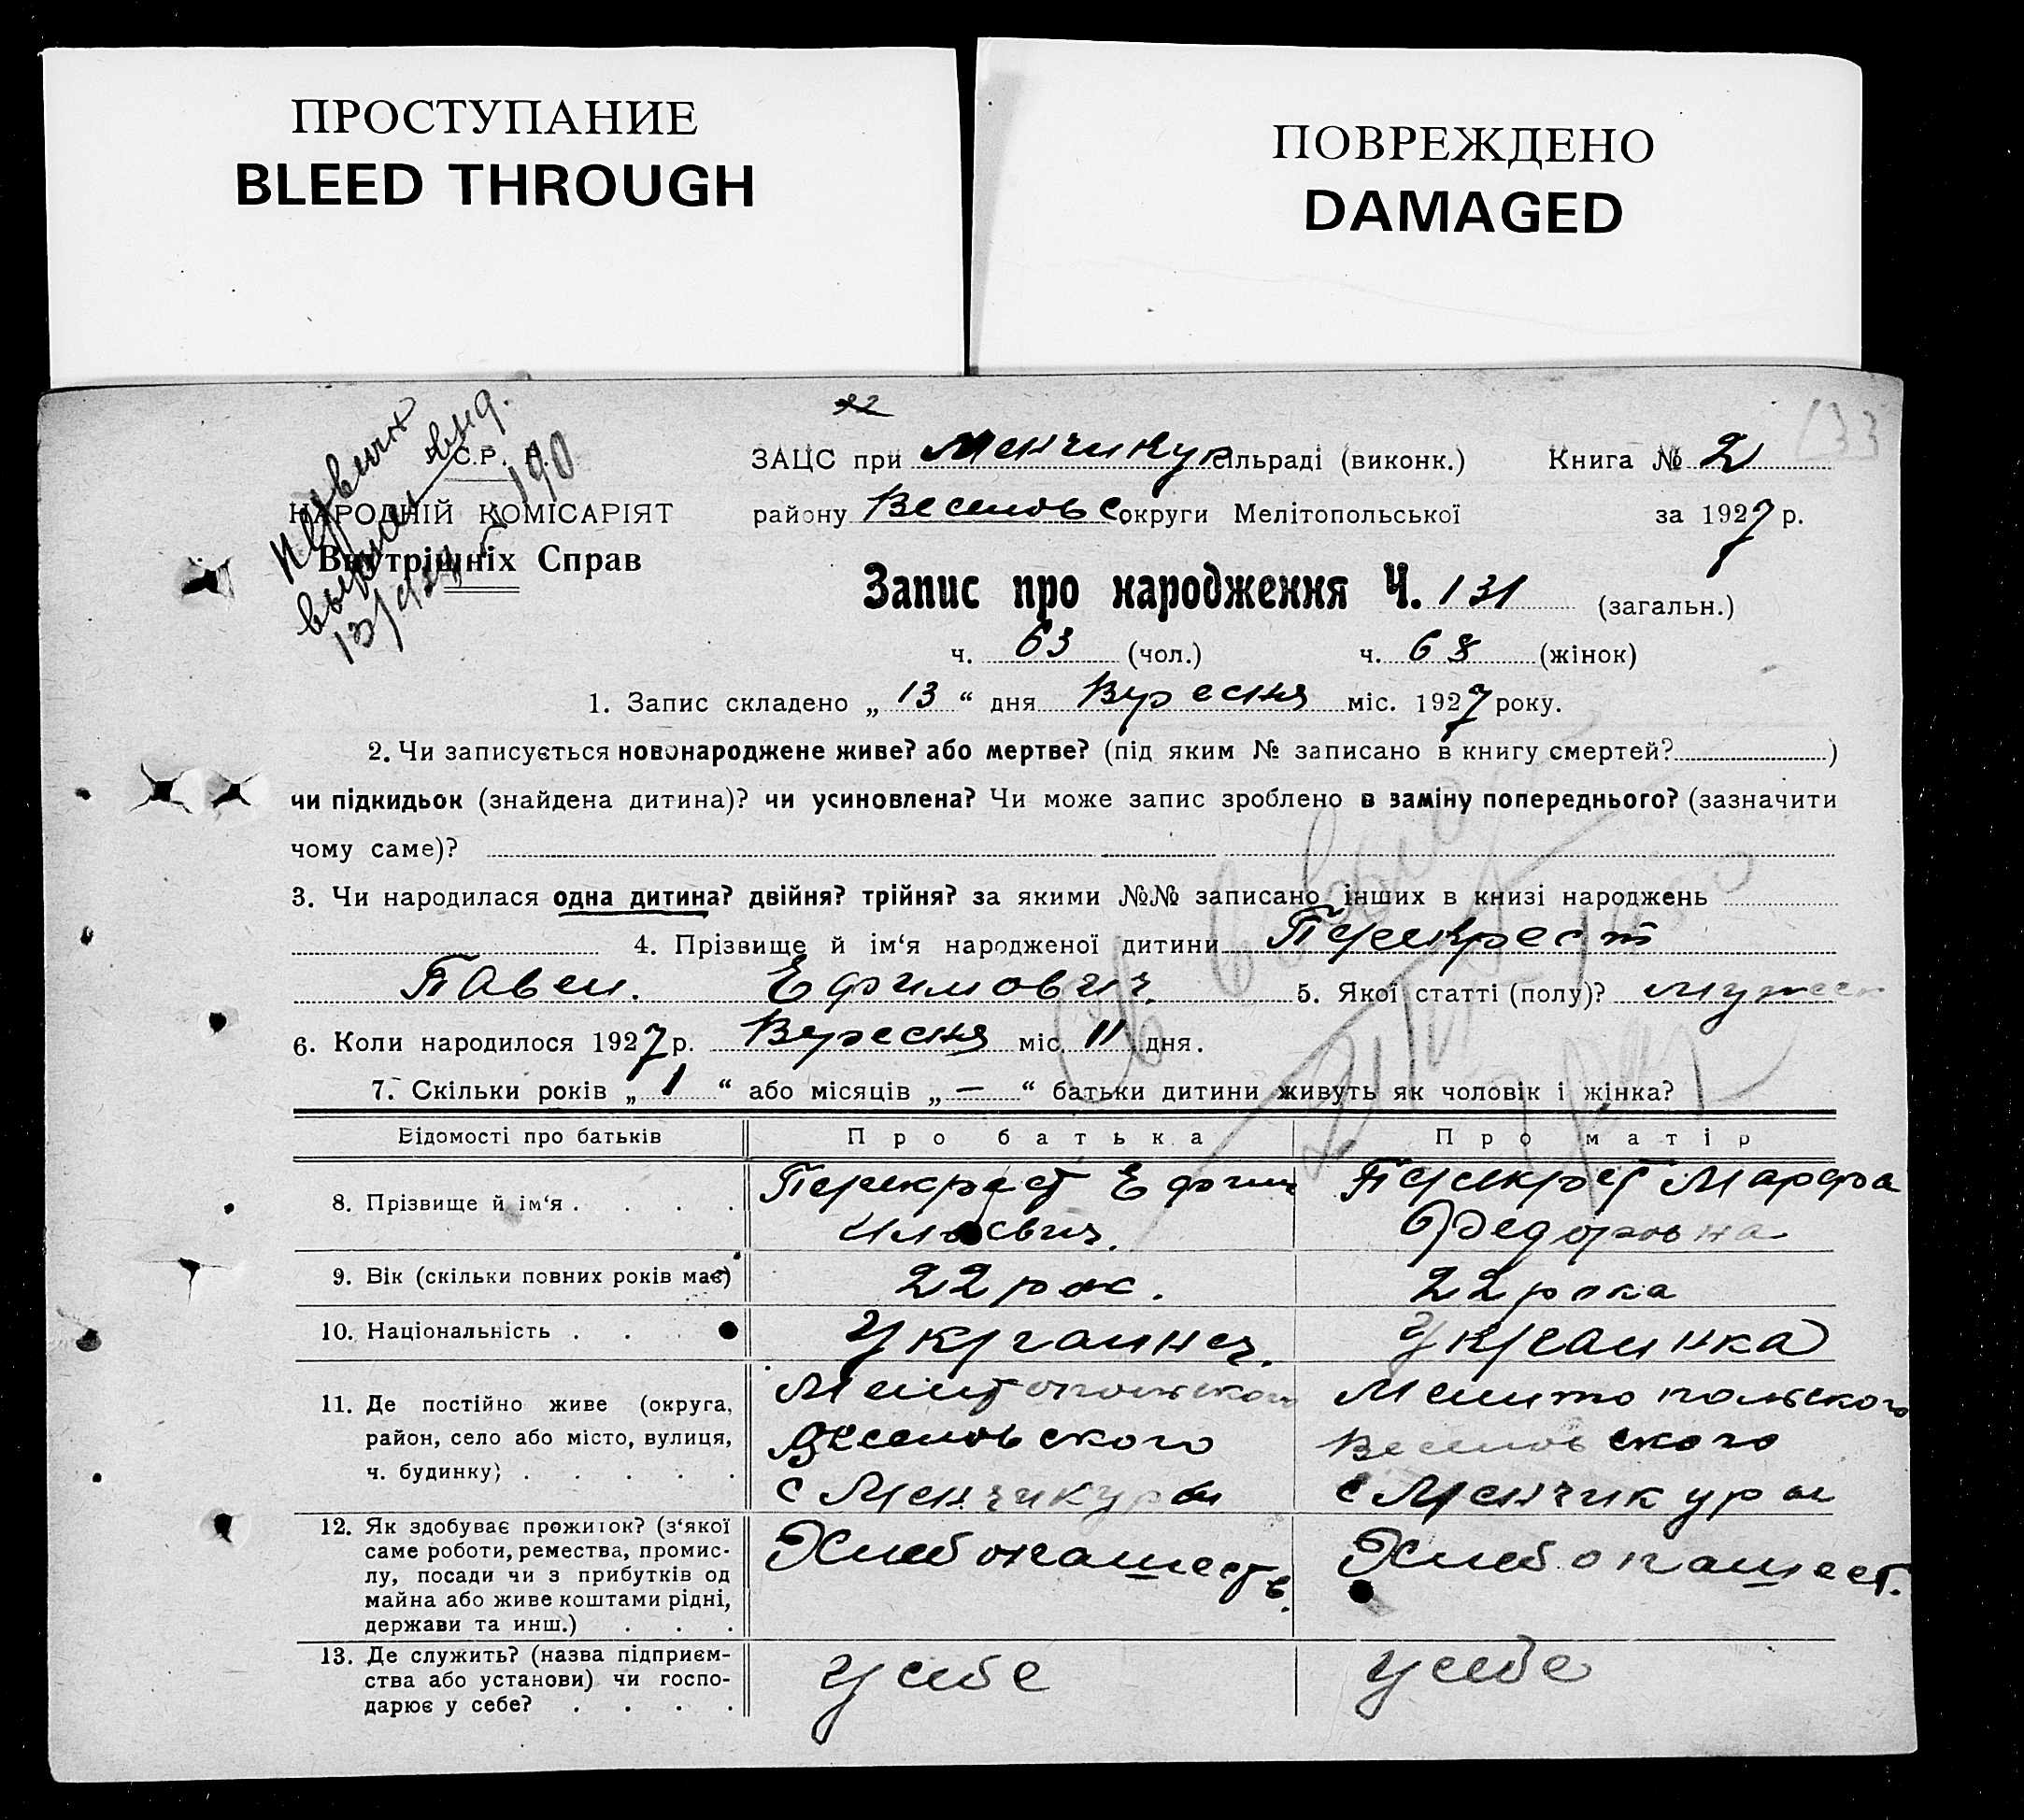 ПРОСТУПАНИЕ
BLEED THROUGH
ПОВРЕЖДЕНО
DAMAGED
133
ЗАЦС при Менчикур сільраді (виконк.) Книга № 2
У.С.Р.Р.
НАРОДНІЙ КОМІСАРІЯТ
Внутрішніх Справ
первичн
выписан
190
району Веселовс округи Мелітопольської за 1927 р.
Запис про народження Ч. 131 (загальн.)
ч. 63 (чол.) ч. 68 (жінок)
1. Запис складено „ 13 “ дня Вересня міс. 1927 року.
2. Чи записується новонароджене живе? або мертве? (під яким № записано в книгу смертей? )
чи підкидьок (знайдена дитина)? чи усиновлена? Чи може запис зроблено в заміну попереднього? (зазначити
чому саме)?
3. Чи народилася одна дитина? двійня? трійня? за якими №№ записано інших в книзі народжень
4. Прізвище й ім‘я народженої дитини Перекрест
Павел. Ефимович. 5. Якої статті (полу)? мужск
6. Коли народилося 1927 р. Вересня міс. 11 дня.
7. Скільки років „ 1 “ або місяців „ — “ батьки дитини живуть як чоловік і жінка?
Відомості про батьків Про батька Про матір
8. Прізвище й ім‘я . . . . Перекрест Ефим Перекрест Марфа
Илюевич. Федоровна
9. Вік (скільки повних років має) 22 рок. 22 рока
10. Національність . . . Украинец. Украинка
11. Де постійно живе (округа, Мелитопольского Мелитопольского
район, село або місто, вулиця, Веселовского Веселовского
ч. будинку) . . . . . с Менчикуры с Менчикуры
12. Як здобуває прожиток? (з‘якої Хлебопашеств. Хлебопашест.
саме роботи, ремества, промис-
лу, посади чи з прибутків од
майна або живе коштами рідні,
держави та инш.) . . .
13. Де служить? (назва підприєм- У себе У себе
ства або установи) чи госпо-
дарює у себе? . . . .